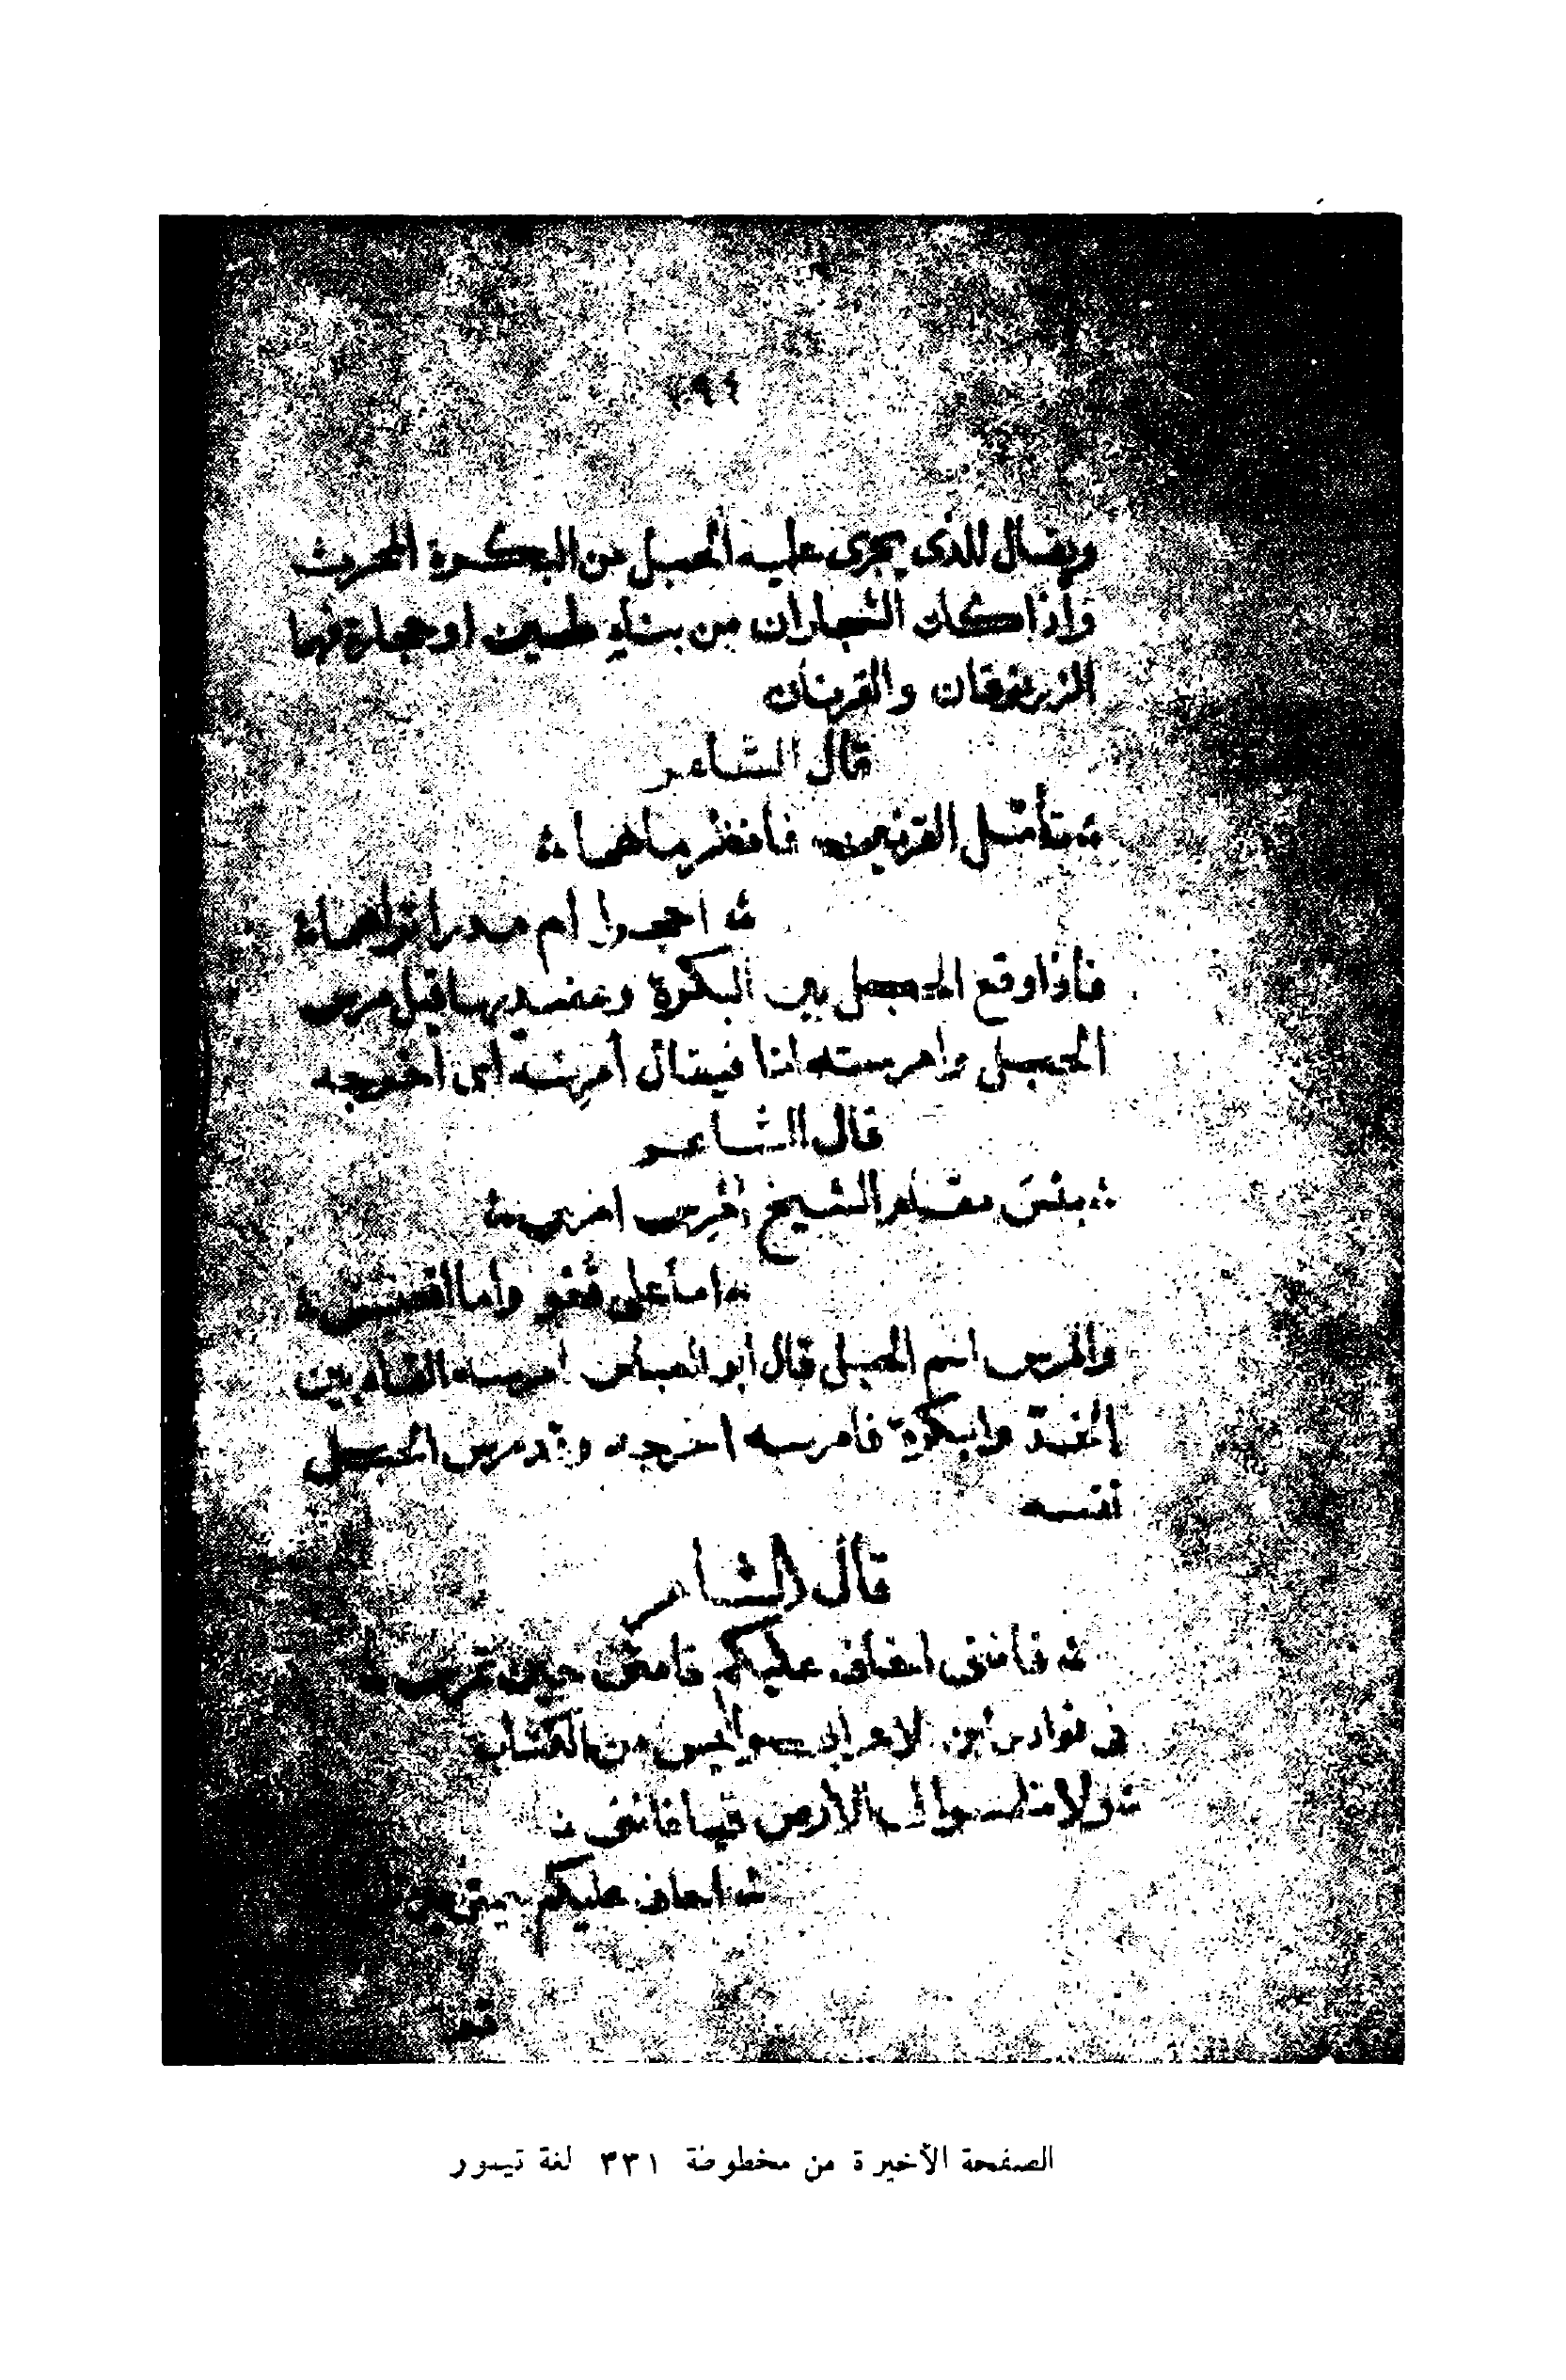 ويقال للذى يجرى عليه الحبل من البكرة المحرث
واذا كان الشجاران من بناء طين او حجارة فهما
الزرنوقان والقرنان
قال الشاعر
تأمل القرنين فانظر ما هما
احجرا ام مدرا تراهما
فاذا وقع الحبل بين البكرة وعضديها قيل مرس
الحبل وامرسته انا فيقال أمرسه أى أخرجه
قال الشاعر
بئس مقام الشيخ امرس امرس
اما على قعو واما اقعنسس
والمرس اسم الحبل قال أبو العباس امرسه القاه بين
الخد والبكرة فامرسه اخرجه وقد مرس الحبل
نفسه
قال الشاعر
فاننى اخاف عليكم فامش حين
فى نوادر ابن الاعرابى وليس من الكتاب
ولا الارض فاننى
اخاف عليكم
الصفحة الأخيرة من مخطوطة ٣٣١ لغة تيمور